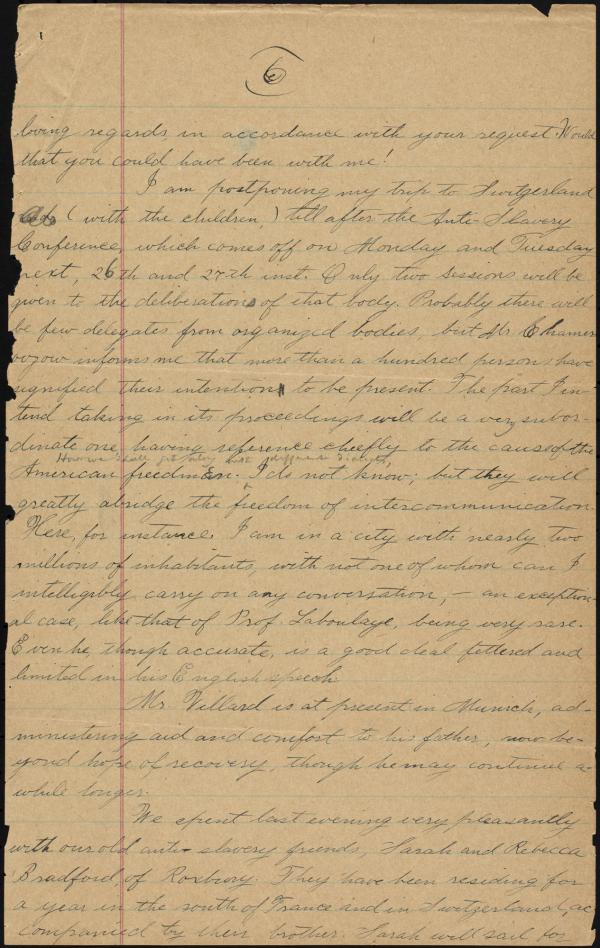 6
loving regards in accordance with your request. Would
that you could have been with me!
I am postponing my trip to Switzerland
(with the children,) till after the Anti-Slavery
Conference, which comes off on Monday and Tuesday
next, 26th and 27th inst. Only two sessions will be
given to the deliberations of that body. Probably there will
be few delegates from organized bodies, but Mr Chamer-
ovzow informs me that more than a hundred persons have
signified their intention to be present. The part I in-
tend taking in its proceedings will be a very subor-
dinate one, having reference cheefly to the cause of the
How we shall get along with different
American freedmen. I do not know; but they will
greatly abridge the freedom of intercommunication.
Here, for instance, I am in a city with nearly two
millions of inhabitants, with not one of whom can I
intelligibly carry on any conversation, – an exception-
al case, like that of Prof. Laboulaye, being very rare.
Even he, though accurate, is a good deal fettered and
limited in his English speech.
Mr. Villard is at present in Munich, ad-
ministering aid and comfort to his father, now be-
yond hope of recovery, though he may continue a-
while longer.
We spent last evening very pleasantly
with our old anti-slavery friends, Sarah and Rebecca
Bradford, of Roxbury. They have been residing for
a year in the south of France and in Switzerland, ac
companied by their brother. Sarah will sail for